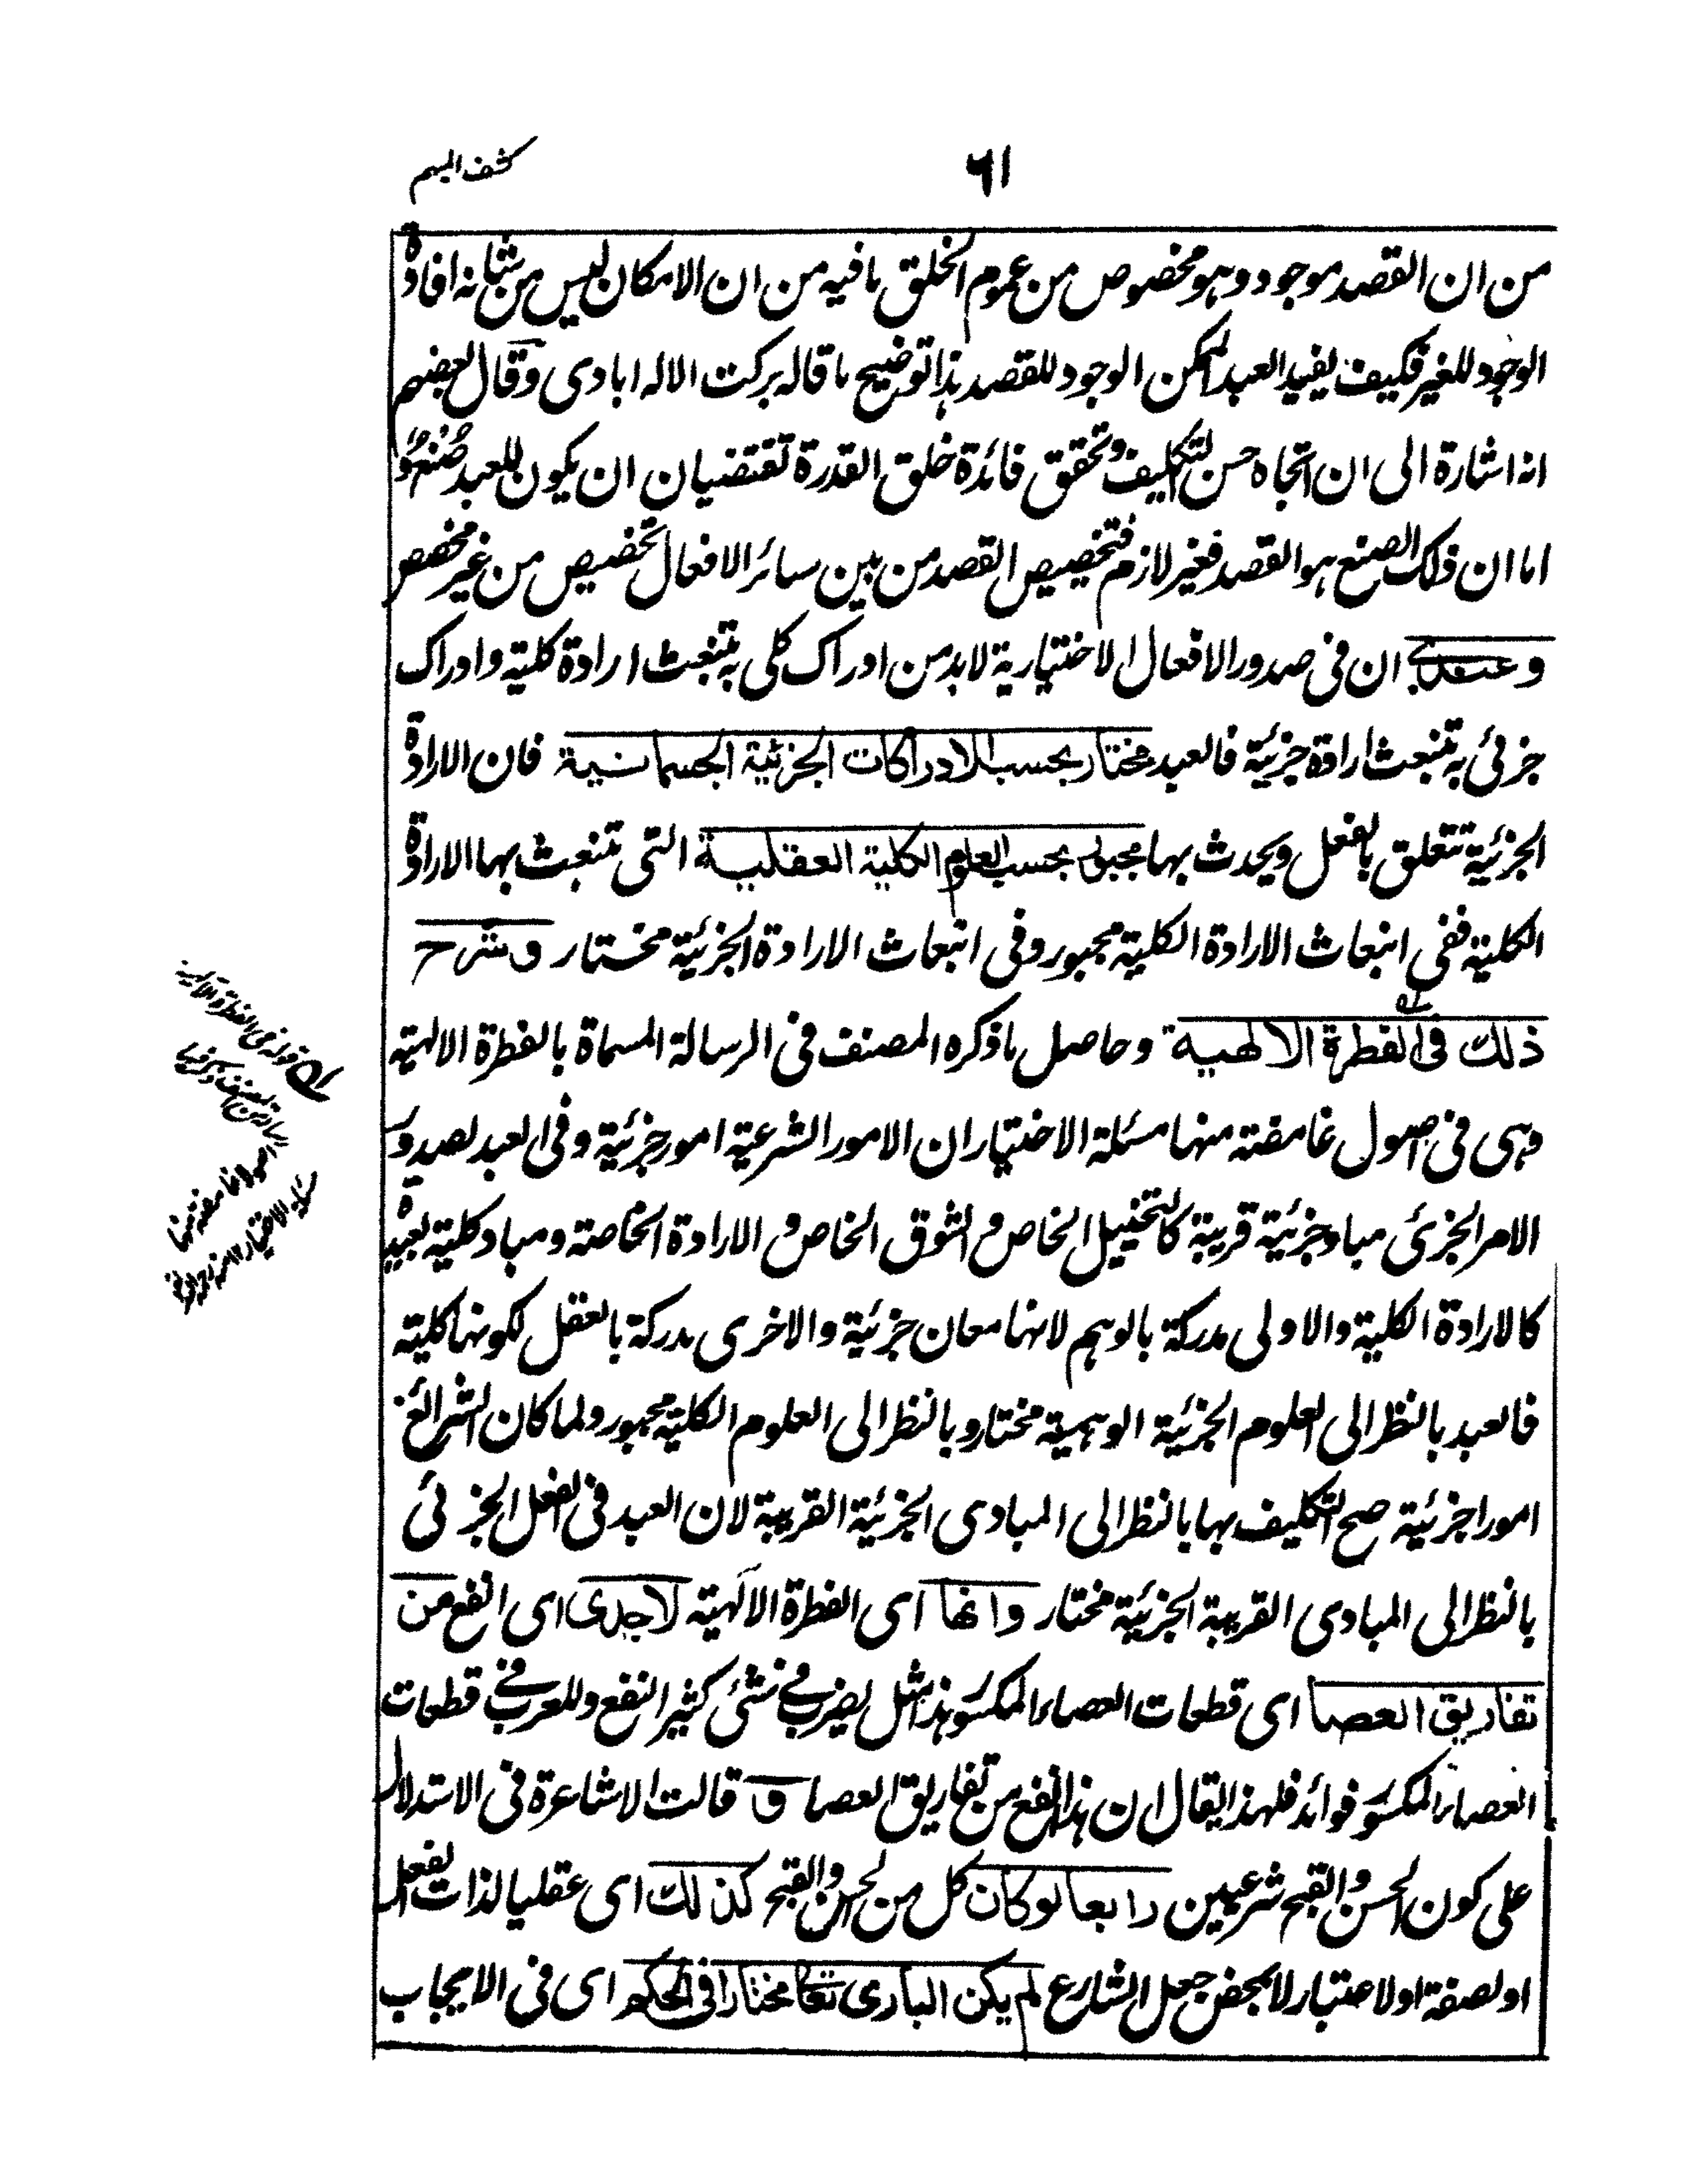 ٦١
كشف المبهم
من ان القصد موجود وهو مخصوص من عموم الخلق ما فيه من ان الامكان ليس من شانه افادة
الوجود للغير فكيف يفيد العبد الممكن الوجود للقصد هذا توضيح ما قاله بركت الاله ابادى وقال بعضهم
انه اشارة الى ان اتجاه حسن التكليف وتحقق فائدة خلق القدرة تقتضيان ان يكون للعبد صُنْعٌ و
اما ان ذلك الصنع هو القصد فغير لازم فتخصيص القصد من بين سائر الافعال تخصيص من غير مخصص
وعندى ان فى صدور الافعال الاختيارية لابد من ادراك كلى به تنبعث ارادة كلية وادراك
جزئى به تنبعث ارادة جزئية فالعبد مختار بحسب الادراكات الجزئية الجسمانية فان الارادة
الجزئية تتعلق بالفعل ويحدث بها مجبور بحسب العلوم الكلية العقلية التى تنبعث بها الارادة
الكلية ففى انبعاث الارادة الكلية مجبور وفى انبعاث الارادة الجزئية مختار وشرح
ذلك فى الفطرة الالهية وحاصل ما ذكره المصنف فى الرسالة المسماة بالفطرة الالهية
وهى فى اصول غامضة منها مسئلة الاختيار ان الامور الشرعية امور جزئية وفى العبد لصدور
الامر الجزئى مباد جزئية قريبة كالتخييل الخاص والشوق الخاص والارادة الخاصة ومباد كلية بعيدة
كالارادة الكلية والاولى مدركة بالوهم لانها معان جزئية والاخرى مدركة بالعقل لكونها كلية
فالعبد بالنظر الى العلوم الجزئية الوهمية مختار وبالنظر الى العلوم الكلية مجبور ولما كان الشرائع
امورا جزئية صح التكليف بها بالنظر الى المبادى الجزئية القريبة لان العبد فى الفعل الجزئى
بالنظر الى المبادى القريبة الجزئية مختار وانها اى الفطرة الالهية لاجدى اى انفع من
تفاريق العصا اى قطعات العصاء المكسو هذا مثل يضرب فى شئ كثير النفع وللعرب فى قطعات
العصاء المكسو فوائد فلهذا يقال ان هذا انفع من تفاريق العصا و قالت الاشاعرة فى الاستدلال
على كون الحسن والقبح شرعيين رابعا لو كان كل من الحسن والقبح كذلك اى عقليا لذات الفعل
او لصفة او لاعتبار لا بمحض جعل الشارع لم يكن البارى تعا مختارا فى الحكم اى فى الايجاب
قوله فى الفطرة الالهية
رسالة من المصنف ذكر فيها
اصولا غامضة منها
مسئلة الاختيار ١٢ منه